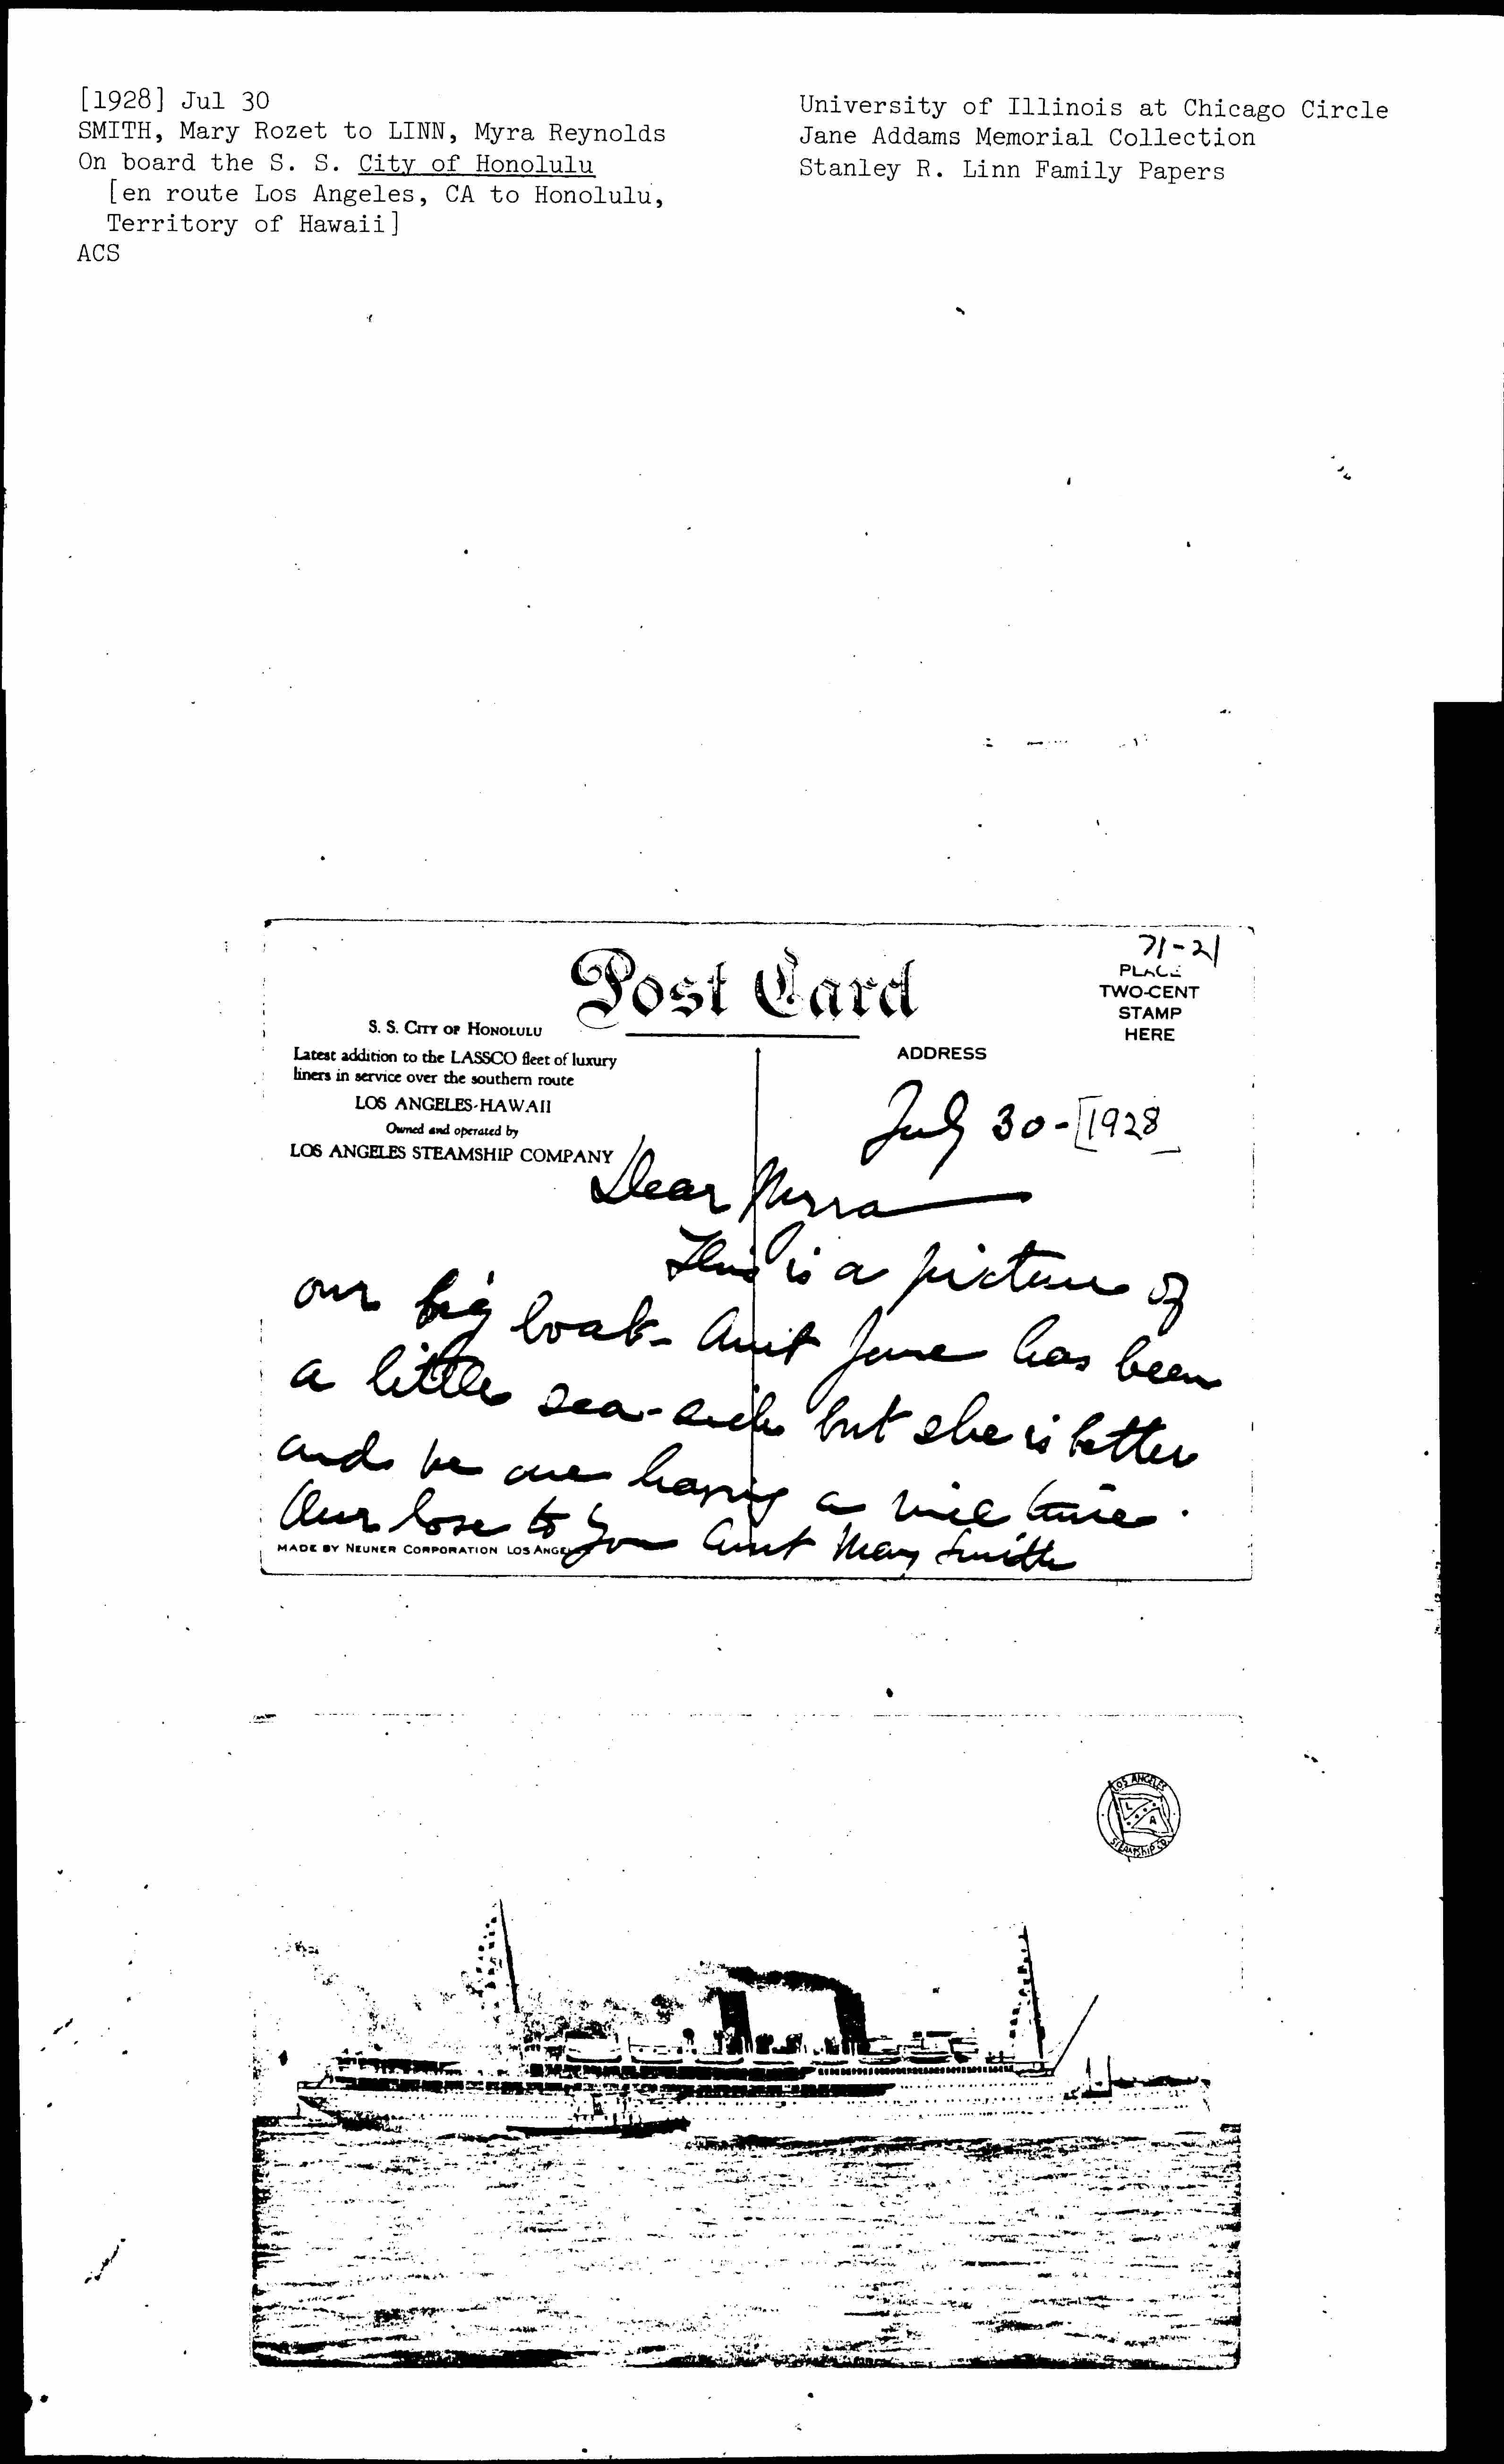 [1928] Jul 30
SMITH, Mary Rozet to LINN, Myra Reynolds
On board the S. S. City of Honolulu
[en route Los Angeles, CA to Honolulu,
Territory of Hawaii]
ACS
University of Illinois at Chicago Circle
Jane Addams Memorial Collection
Stanley R. Linn Family Papers
71-21
Post Card
PLACE
TWO-CENT
STAMP
HERE
S. S. CITY OF HONOLULU
Latest addition to the LASSCO fleet of luxury
liners in service over the southern route
LOS ANGELES-HAWAII
Owned and operated by
LOS ANGELES STEAMSHIP COMPANY
ADDRESS
July 30-[1928
Dear Myra
This is a picture of
our big boat- Aunt Jane has been
a little sea-sick but she is better
and we are having a nice time.
Our love to you Aunt Mary Smith
MADE BY NEUNER CORPORATION LOS ANGELES
LOS ANGELES
L A
STEAMSHIP CO.